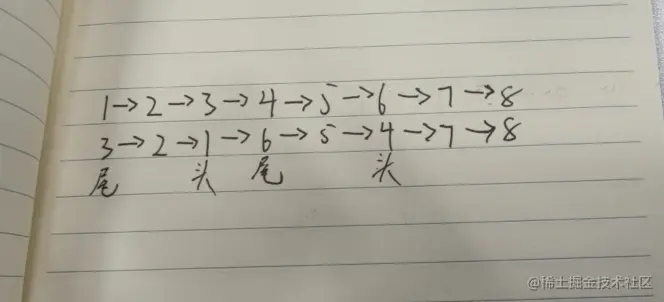 1→2→3→4→5→6→7→8
3→2→1→6→5→4→7→8
尾 头 尾 头
@稀土掘金技术社区